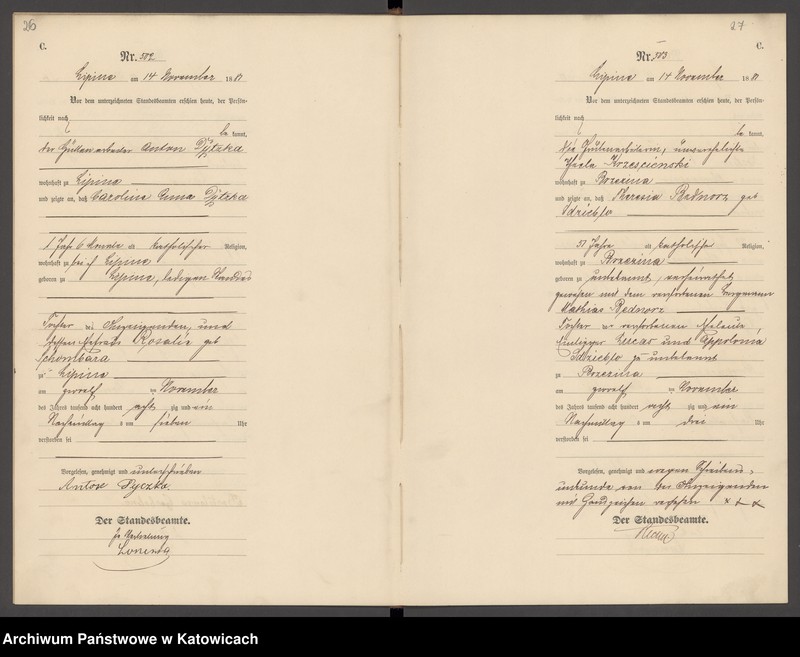 26
C.
Nr. 582
Lipine am 14 November 1881
Vor dem unterzeichneten Standesbeamten erschien heute, der Persön-
lichkeit nach
be kannt,
der Hüttenarbeiter Anton Dytzka
wohnhaft zu Lipine
und zeigte an, daß Carolina Anna Dytzka
1 Jahr 6 Monate alt katholischer Religion,
wohnhaft zu bei ihm Lipine
geboren zu Lipine, ledigen Standes
Tochter des Anzeigenden, und
dessen Ehefrau Rosalie geb
Schombara
zu Lipine
am zwölf ten November
des Jahres tausend acht hundert acht zig und ein
Nachmittag s um sieben Uhr
verstorben sei
Vorgelesen, genehmigt und unterschrieben
Antose Dyczka.
Der Standesbeamte.
In Vertretung
27
Nr. 583
C.
Lipine am 14 November 1881
Vor dem unterzeichneten Standesbeamten erschien heute, der Persön-
lichkeit nach
be kannt,
die Hüttenarbeiterin, unverehelichte
Thecla Krzescienski
wohnhaft zu Brzezina
und zeigte an, daß Theresia Bednorz geb
Idzieblo
51 Jahre alt katholischer Religion,
wohnhaft zu Brzezina
geboren zu unbekannt, verheirathet
gewesen mit dem verstorbenen Bergmann
Mathias Bednorz
Tochter der verstorbenen Eheleute,
Lucas und Appolonia
Idzieblo zu unbekannt
zu Brzezina
am zwölf ten November
des Jahres tausend acht hundert acht zig und ein
Nachmittag s um drei Uhr
verstorben sei
Vorgelesen, genehmigt und wegen Schreibens-
unkunde von der Anzeigenden
mit Handzeichen versehen + + +
Der Standesbeamte.
Archiwum Państwowe w Katowicach